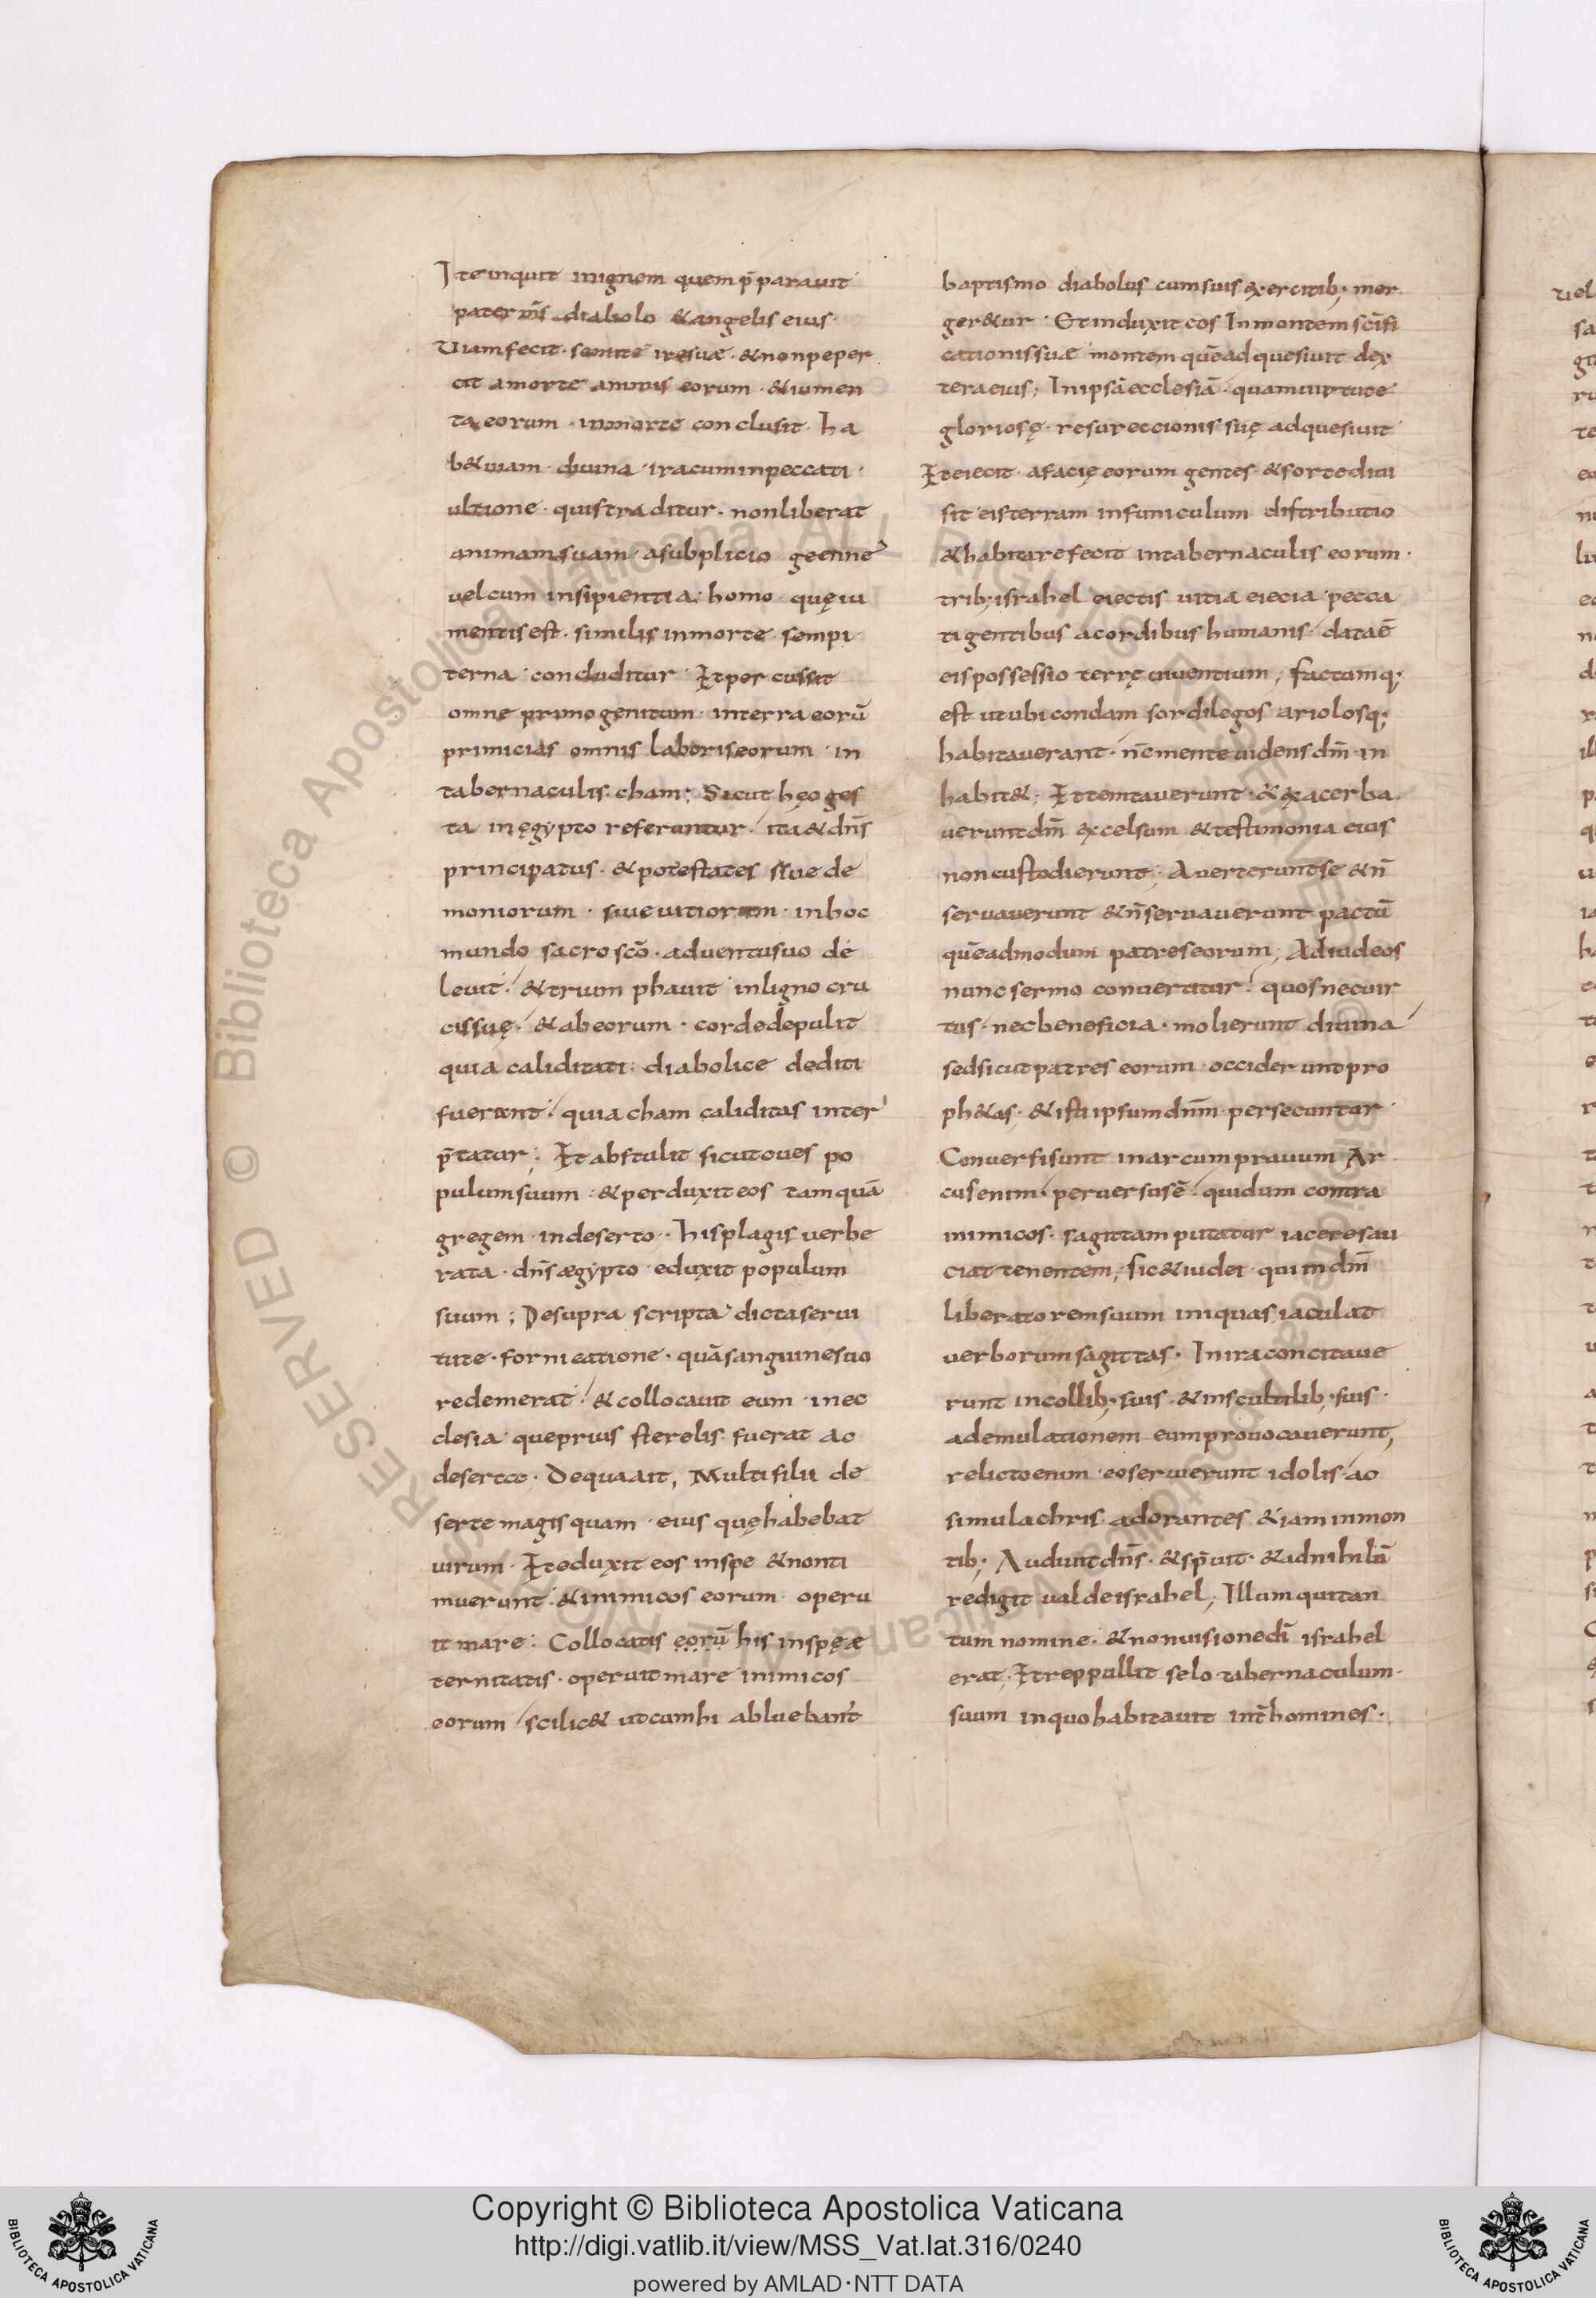 Ite inquit inignem quem p̄parauit
pater m̄s diabolo &angelis eius·
Uiamfecit· semite iresuæ· &nonpeper
cit amorte animis eorum· &iumen
ta eorum· inmorte conclusit· ha
b&uiam· diuina· iracuminpeccati·
ultione· quistraditur· nonliberat
animamsuam· asubplicio geenne
uelcum insipientia· homo· quęiu
mentisest· similis inmorte· sempi
terna· concluditur· Et percussit
omne primogenitum· interra eorū
primicias omnis laboriseorum· in
tabernaculis· cham; Sicut hęc ges
ta inęgypto referuntur· ita & dn̄s
principatus· & potestates siue de
moniorum· siueuitiorum· inhoc
mundo sacro scō· aduentusuo de
leuit· &trium phauit· inligno cru
cissuę· &abeorum· cordedepulit
quia caliditati· diabolice dediti
fuerant· quia cham caliditas inter
p̄tatur; Et abstulit sicutoues po
pulumsuum· &perduxiteos tamquā
gregem· indeserto· hisplagis uerbe
rata· dn̄s ægypto· eduxit populum
suum; Desupra scripta dictaserui
tute· fornicatione· quāsanguinesuo
redemerat· &collocauit eum· inec
clesia· queprius sterelis· fuerat ac
deserta· Dequaait, Multi filii de
serte magis quam· eius quęhabebat
uirum· Et eduxit eos inspe &nonti
muerunt· &inimicos eorum· operu
it mare; Collocatis eorū his inspęæ
ternitatis· operuitmare inimicos
eorum scilic& utcumhi abluebant̄
baptismo diabolus cumsuis exercitib; mer
ger&ur· Et induxit eos In montem scīfi
cationissuæ montem quēadquesiuit dex
teraeius; Inipsāecclesiā· quamuirtute
gloriosę· resureccionis suę adquesiuit
Et eiecit· afacię eorum gentes· &sortediui
sit eisterram infuniculum distributio
&habitarefecit intabernaculis eorum·
trib; israhel eiectis uitia eiecia pecca
tigentibus acordibus humanis· dataē
eispossessio terrę uiuentium; factumq;
est utubicondam sordilegos ariolosq;
habitauerant· n̄cmente uidens dm̄ in
habit&; Et temtauerunt· &exacerba
uerunt dm̄ excelsum &testimonia eius
noncustodierunt; Auerteruntse &n̄
seruauerunt &n̄seruauerunt pactū
quēadmodum patreseorum; Adiudeos
nunc sermo conuertitur· quosnecuir
tus· necbeneficia· molierunt diuina
sedsicutpatres eorum· occiderunt pro
ph&as· &isti ipsumdn̄m persecuntur
Conuersisunt inarcumprauum Ar
cusenim· peruersusē· quidum contra
inimicos· sagittam putatur iaceresau
ciat tenentem; sic&iudei· quiindm̄
liberatoremsuum iniquas iaculat
uerborumsagittas· Iniraconcitaue
runt incollib; suis &insculptilib; suis·
ademulationem eumprouocauerunt,
relictoenim· eoseruierunt idolis· ac
simulachris· adorantes &iaminmon
tib; Audiuitdn̄s· &sp̄uit· &adnihilū
redigit ualdeisrahel; Illumquitan
tum nomine· &nonuisionedī israhel
erat; Et reppullit selo tabernaculum·
suum inquohabitauit int̄homines·
Copyright © Biblioteca Apostolica Vaticana
http://digi.vatlib.it/view/MSS_Vat.lat.316/0240
powered by AMLAD·NTT DATA